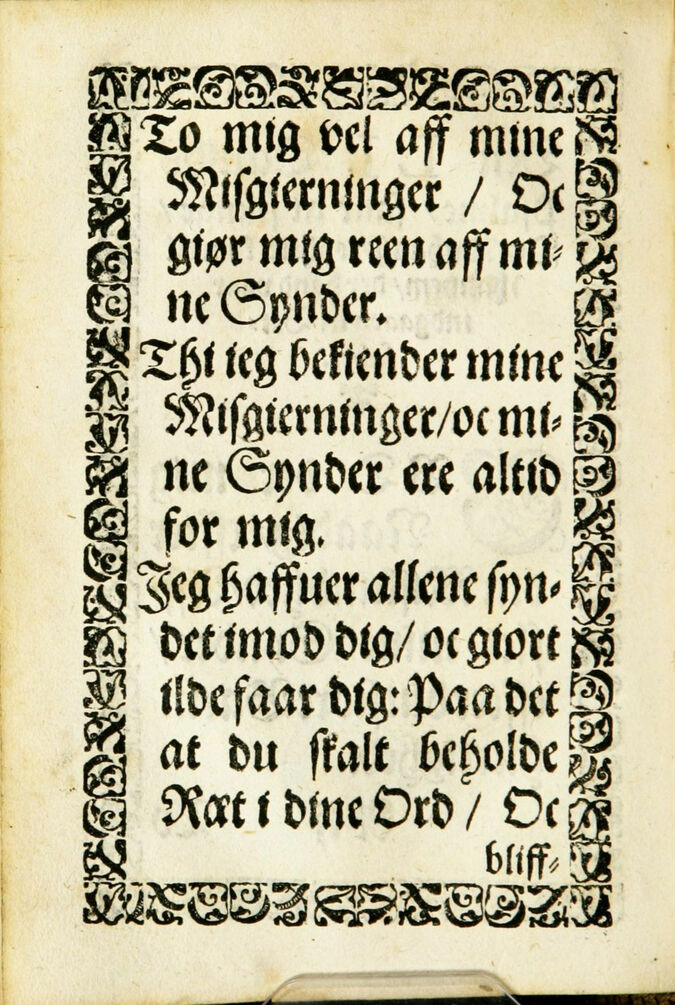 To mig vel aff mine
Misgierninger / Oc
giør mig reen aff mi⸗
ne Synder.
Thi ieg bekiender mine
Misgierninger/oc mi⸗
ne Synder ere altid
for mig.
Jeg haffuer allene syn⸗
det imod dig/ oc giort
ilde faar dig: Paa det
at du skalt beholde
Ræt i dine Ord / Oc
bliff⸗